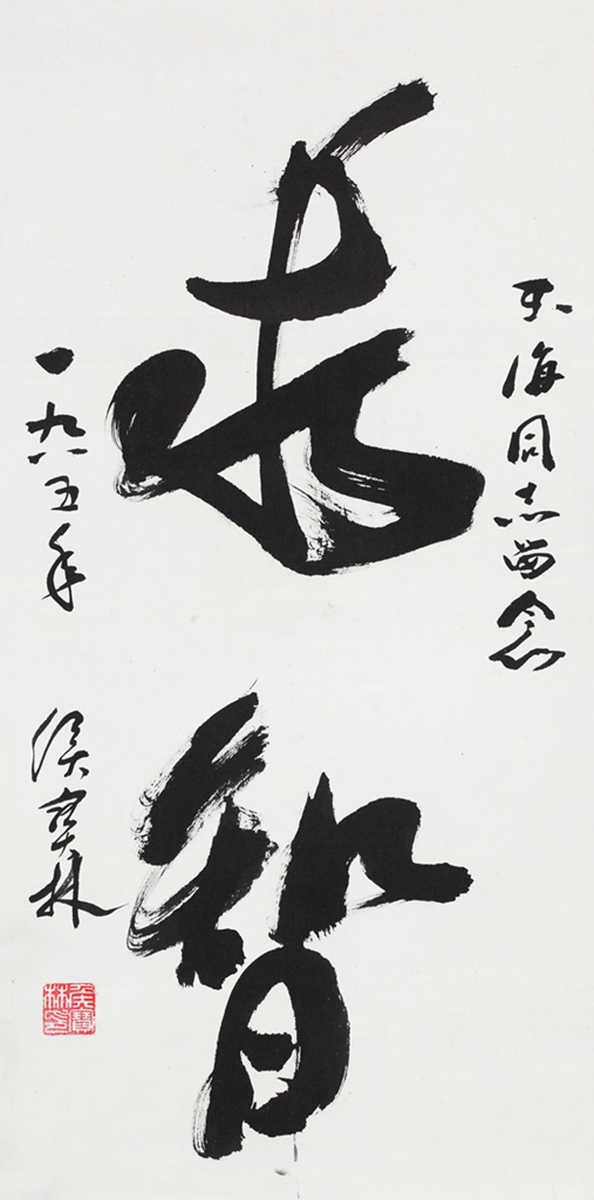 玉海同志留念
求智
一九八五年
侯宝林
侯寶林印